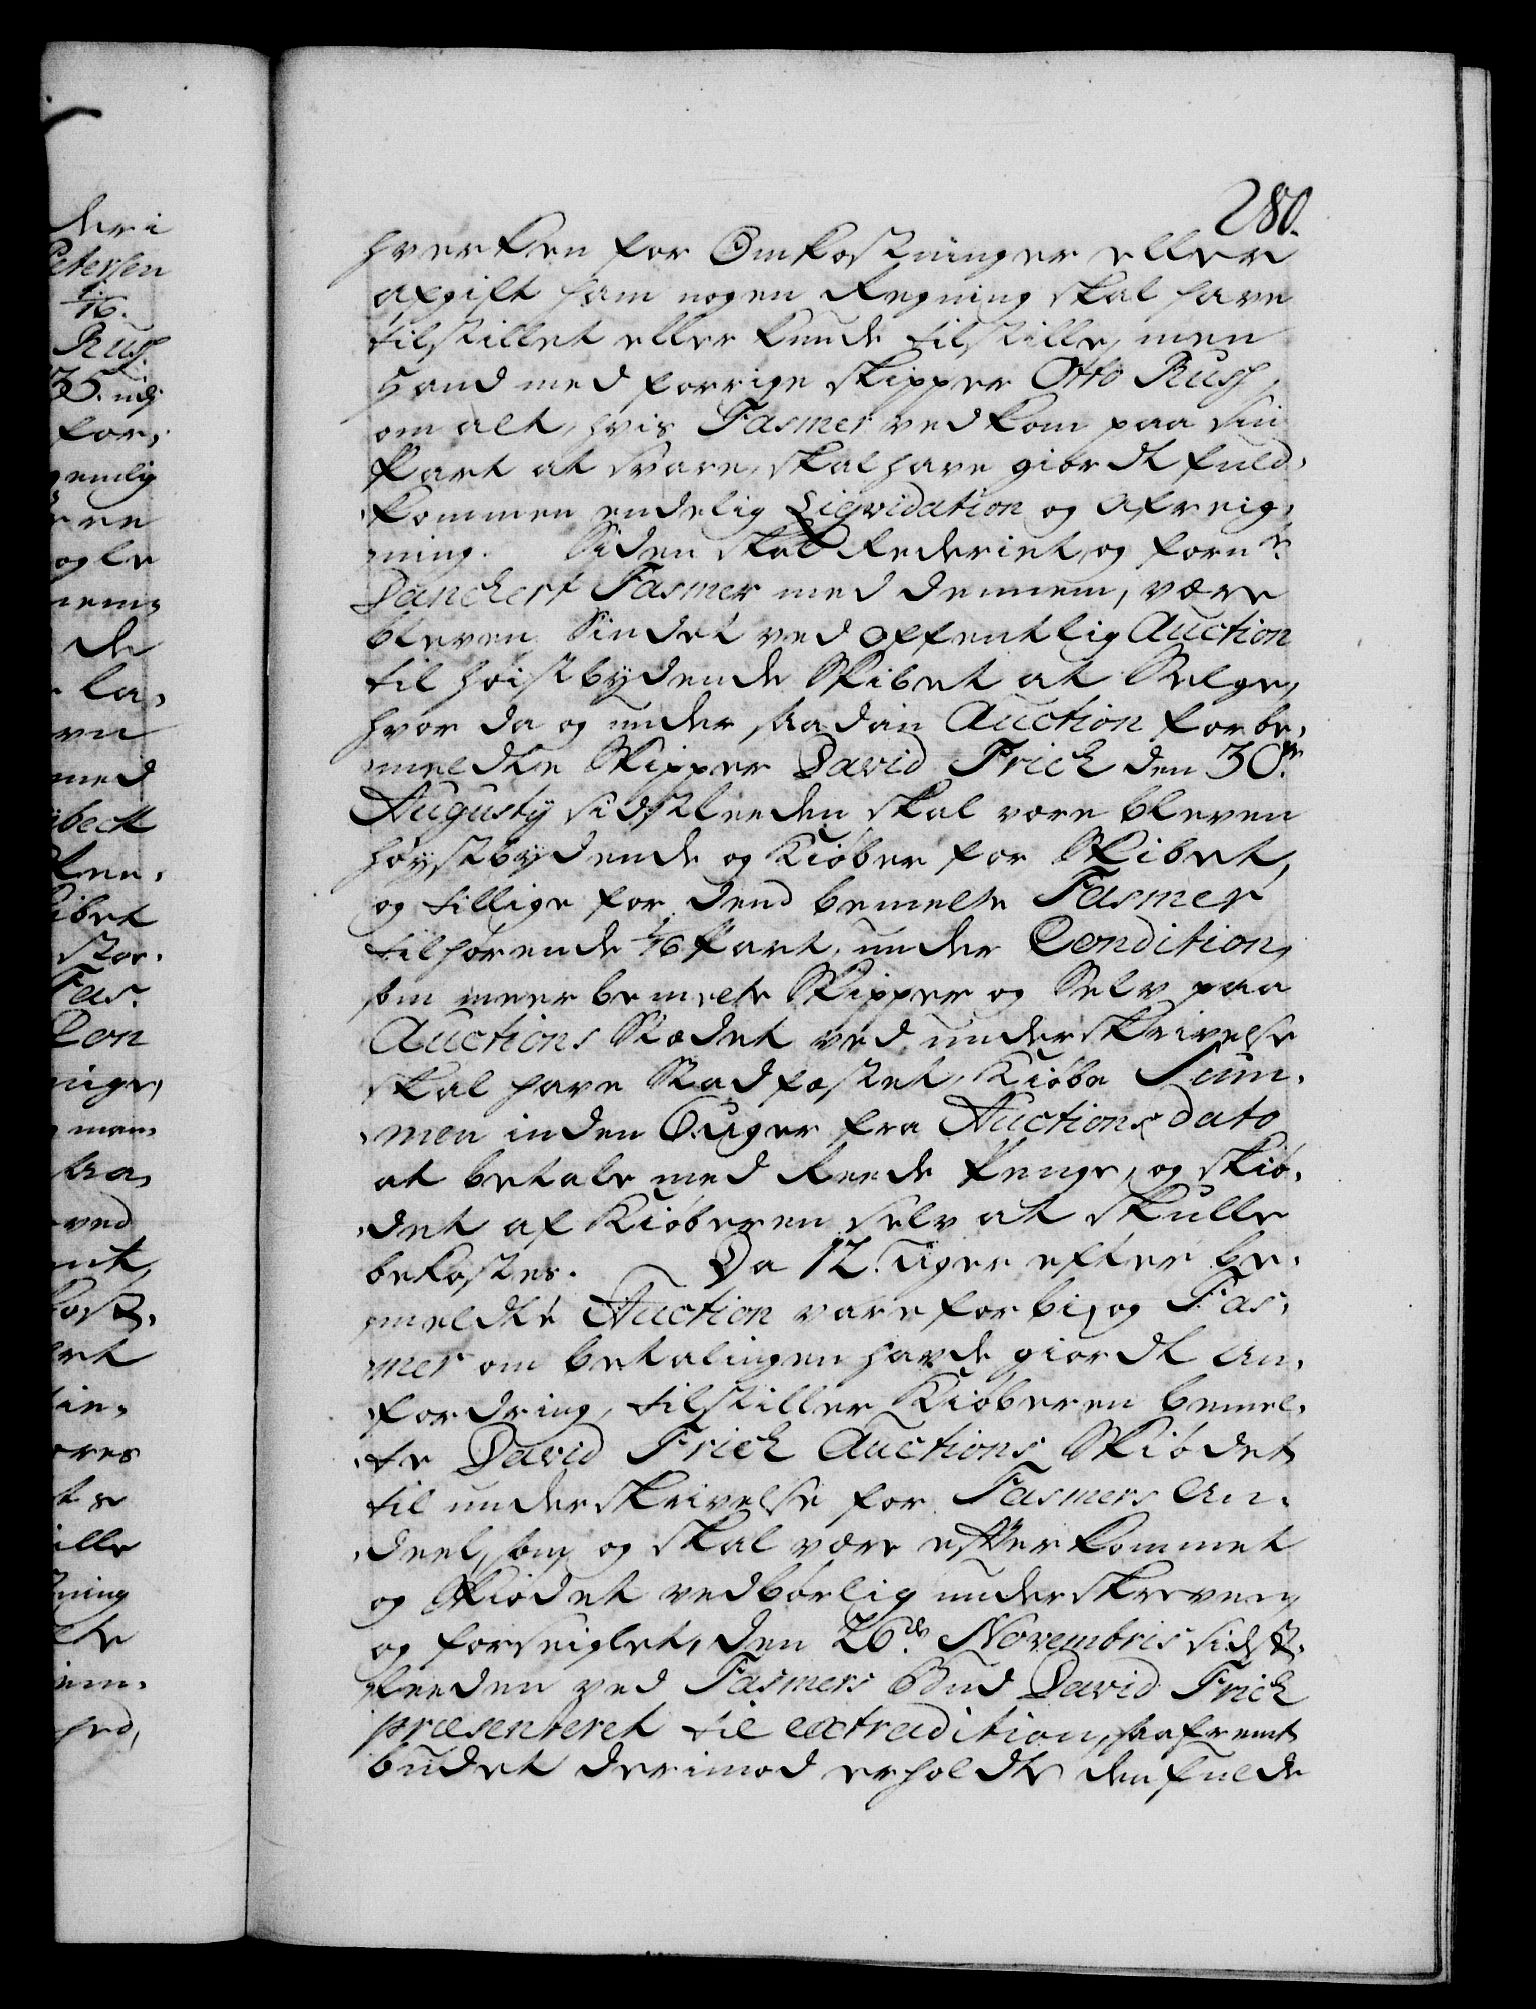 280.
hverken for Omkostninger eller
afgift ham nogen Regning skal have
tilstillet eller kunde tilstille, men
Hand med forrige Skipper Otto Rusch,
om alt, hvis Fasmer vedkom paa sin
Part at svare, skal have giordt fuld-
kommen endelig Liqvidation og Afreig-
ning. Siden skal Rederiet og forne
Danckert Fasmer med dennem, være
bleven Sindet ved offentlig Auction
til høistbydende Skibet at Selge,
hvor da og under saadan Auction forbe-
meldte Skipper David Frich den 30te
Augusty sidstleeden skal være bleven
høystbydende og Kiøber for Skibet,
og tillige for dend bemelte Fasmer
tilhørende 1/16 Part, under Condition,
som meerbemelte Skipper og Selv paa
Auctions Stædet ved underskrivelse
skal have Stadfæstet, Kiøbe Sum-
men inden 6 uger fra Auctions dato
at betale med Reede Penge, og skiø-
det af Kiøberen selv at skulle
bekostes. Da 12. uger efter be-
meldte Auction vare forbi, og Fas-
mer om betalingen havde giordt An-
fordring, tilstiller Kiøberen bemel-
te David Frich Auctions Skiødet
til underskrivelse for Fasmers An-
deel, som og skal være efterkommet
og Skiødet vedbørlig underskreven
og forseiglet, den 26de Novembris sidst-
leeden ved Fasmers Bud David Frich
præsenteret til extradition, saafremt
budet derimod erholdte den fulde

deri
Petersen
1/16.
Rusch
35. ndj
for-
emlig
ogle
nem-
de
la-
med
ybeck
ibet
stor-
Fas-
Con
man-
ved
ores
ille
ning